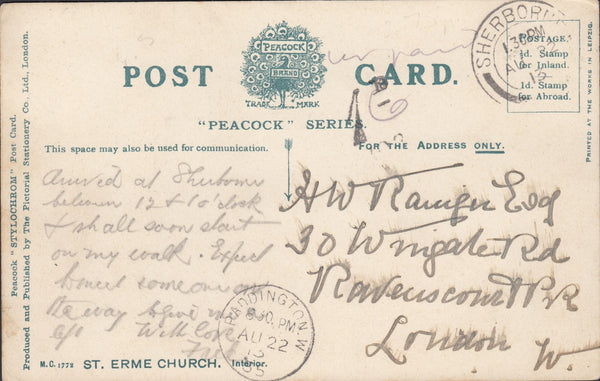 POST CARD.
PEACOCK
BRAND
TRADE MARK
"PEACOCK" SERIES.
This space may also be used for communication.
FOR THE ADDRESS ONLY.
POSTAGE.
½d. Stamp
for Inland.
1d. Stamp
for Abroad.
PRINTED AT THE WORKS IN LEIPZIG.
Peacock "STYLOCHROM" Post Card.
Produced and Published by The Pictorial Stationery Co. Ltd., London.
SHERBORNE
1.30PM
AU 22
13
Arrived at Sherborne
between 12 & 1 o'clock
& shall soon start
on my walk. Expect
to meet someone on
the way to give me a
lift With Love
H W Esq
30 Wingate Rd
Ravenscourt Pk
London W.
PADDINGTON.W
6.30.PM
AU 22
13
M.C. 1772 ST. ERME CHURCH. Interior.